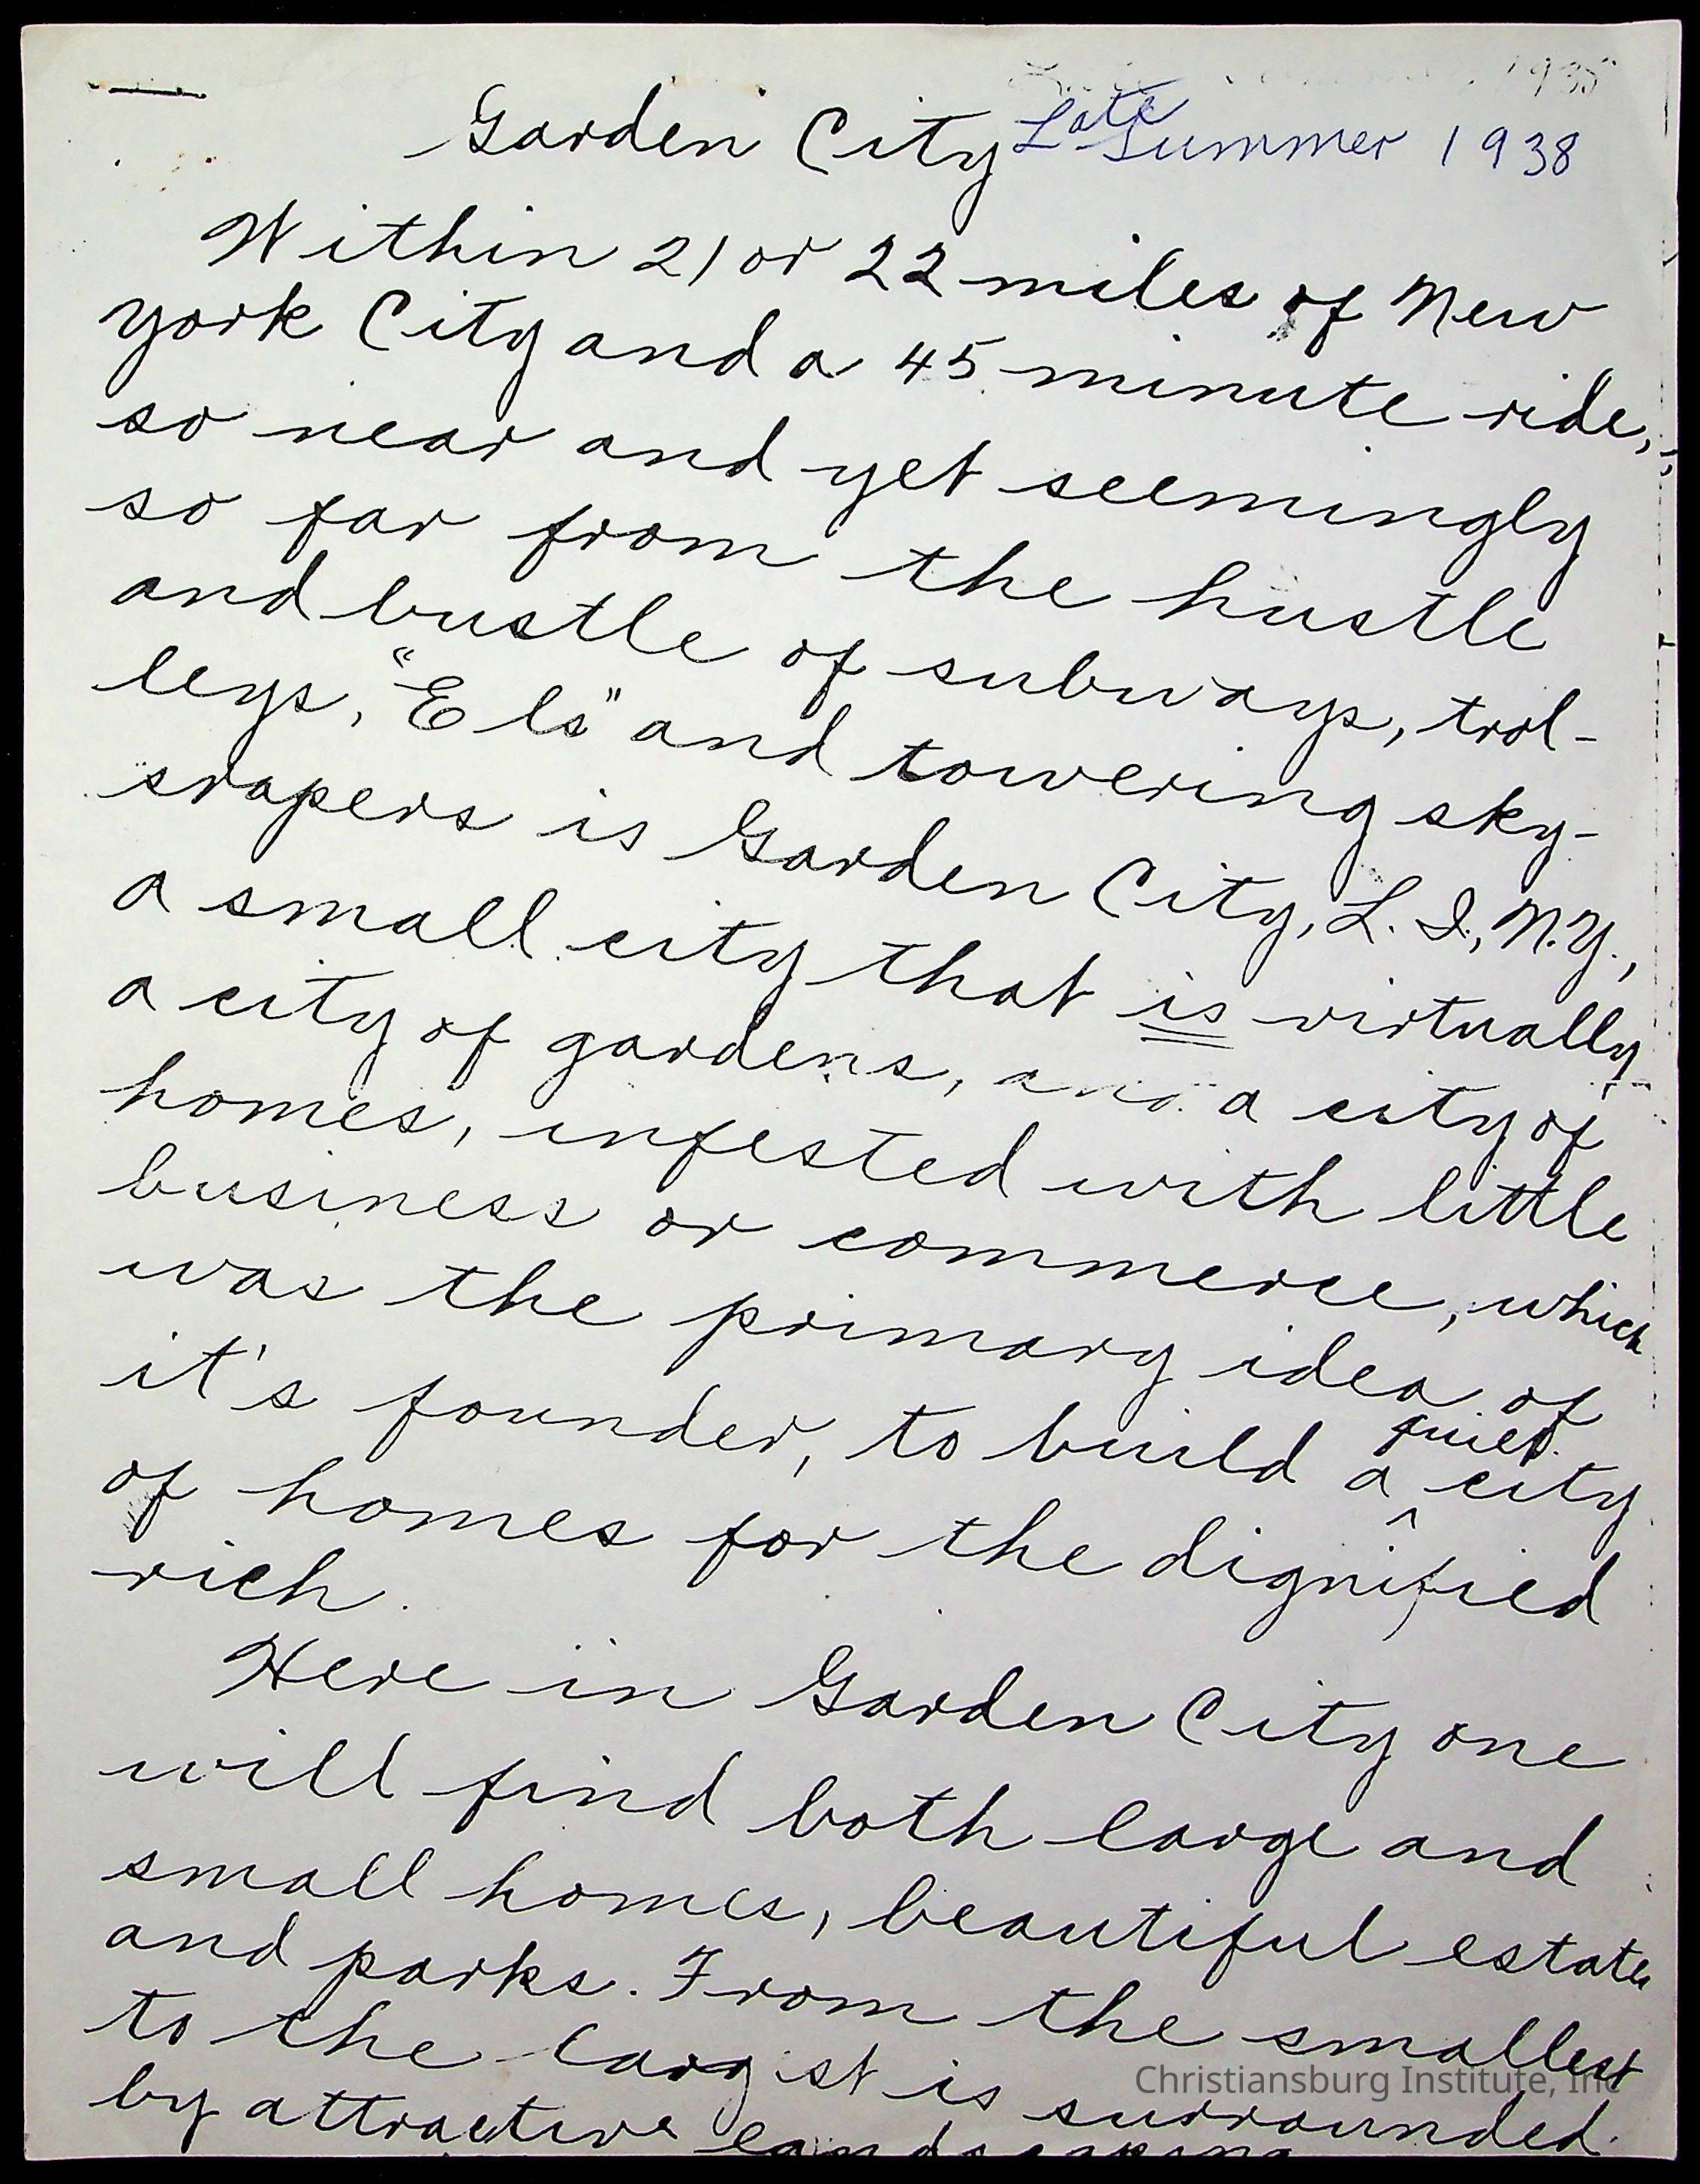 1935
Garden City Late Summer 1938
Within 21 or 22 miles of New
York City and a 45 minute ride,
so near and yet seemingly
so far from the hustle
and bustle of subways, trol-
leys, "Els" and towering sky-
srapers is Garden City, L. I., N.Y.,
a small city that is virtually
a city of gardens, and a city of
homes, infested with little
business or commerce, which
was the primary idea of
it's founder, to build a quiet city
of homes for the dignified
rich.
Here in Garden City one
will find both large and
small homes, beautiful estates
and parks. From the smallest
to the largest is surrounded
by attractive landscaping
Christiansburg Institute, Inc